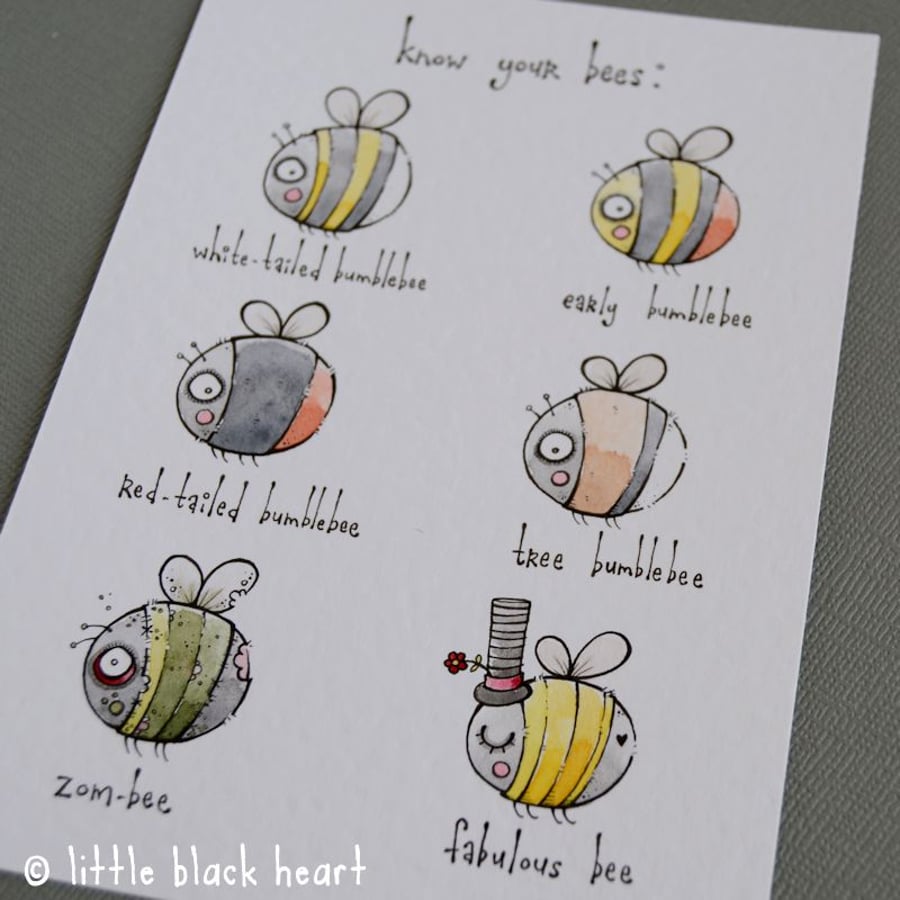 know your bees:
white-tailed bumblebee
early bumblebee
red-tailed bumblebee
tree bumblebee
zom-bee
fabulous bee
© little black heart